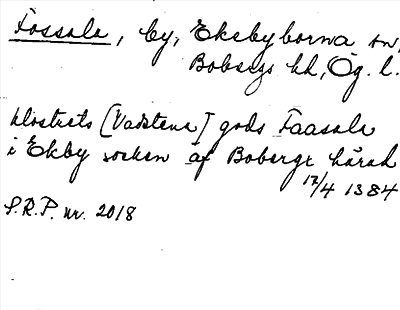 Fossala, by, Ekebyborna sn,
Bobergs hd, Ög. l.
klostrets [Vadstena] gods Faasale
i Ekby socken af Bobergx härad
17/4 1384
S.R.P. nr. 2018